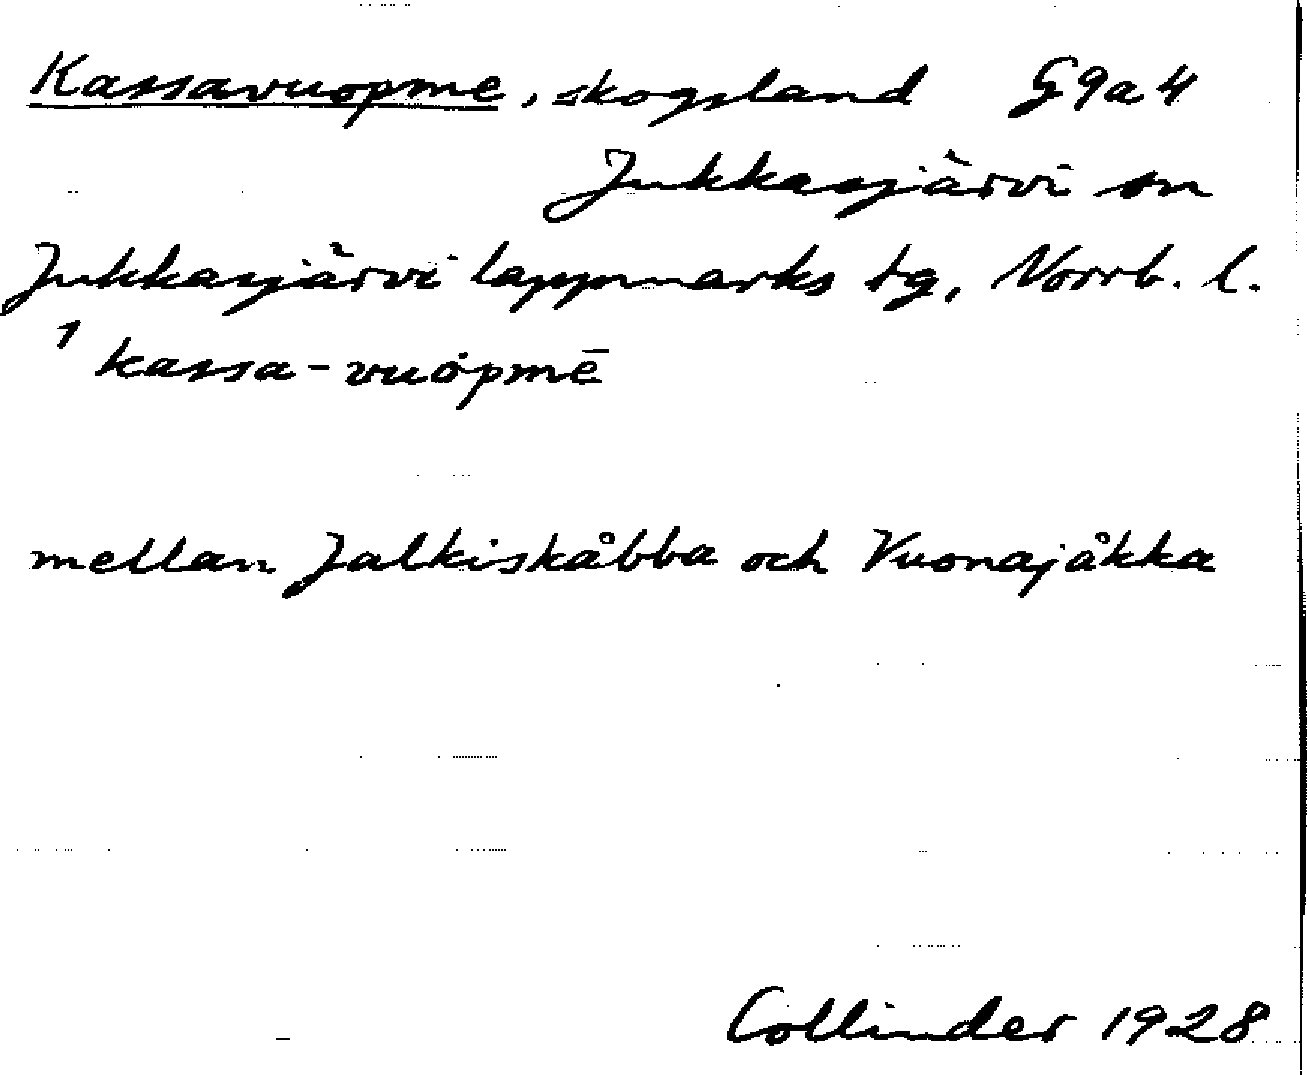 Kassavuopme, skogsland G9a4
Jukkasjärvi sn
Jukkasjärvi lappmarks tg, Norrb. l.
1 kassa-vuȯpmē
mellan Jalkiskåbba och Vuonajåkka
Collinder 1928